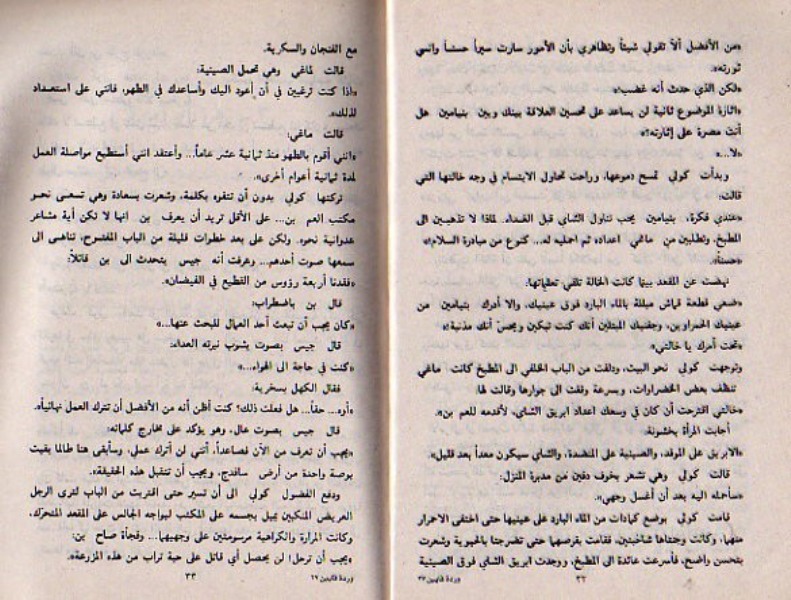 «من الأفضل ألاّ تقولي شيئاً وتظاهري بأن الأمور سارت سيراً حسناً وانسي
ثورته».
«لكن الذي حدث أنه غضب».
«اثارة الموضوع ثانية لن يساعد على تحسين العلاقة بينك وبين بنيامين هل
أنت مصرة على إثارته؟»
«لا...»
وبدأت كولي تمسح دموعها، وراحت تحاول الابتسام في وجه خالتها التي
قالت:
«عندي فكرة، بنيامين يجب تناول الشاي قبل الغداء. لماذا لا تذهبين الى
المطبخ، وتطلبين من ماغي اعداده ثم احمليه له... كنوع من مبادرة السلام!»
«حسناً».
نهضت عن المقعد بينما كانت الخالة تلقي تعليماتها:
«ضعي قطعة قماش مبللة بالماء البارد فوق عينيك، والا أدرك بنيامين من
عينيك الحمراوين، وجفنيك المبتلين أنك كنت تبكين ويحس أنك مذنبة!»
«تحت أمرك يا خالتي».
وتوجهت كولي نحو البيت، ودلفت من الباب الخلفي الى المطبخ كانت ماغي
تنظف بعض الخضراوات، وبسرعة وقفت الى جوارها وقالت لها:
«خالتي اقترحت أن كان في وسعك اعداد ابريق الشاي، لأقدمه للعم بن».
أجابت المرأة بخشونة:
«الابريق على الموقد، والصينية على المنضدة، والشاي سيكون معداً بعد قليل».
قالت كولي وهي تشعر بخوف دفين من مدبرة المنزل:
«سأحمله اليه بعد أن أغسل وجهي».
قامت كولي بوضع كمادات من الماء البارد على عينيها حتى اختفى الاحمرار
منها، وكانت وجنتاها شاحبتين، فقامت بقرصها حتى تضرجتا بالحيوية وشعرت
بتحسن واضح، فأسرعت عائدة الى المطبخ، ووجدت ابريق الشاي فوق الصينية
٣٢
وردة قايين ٣٢
مع الفنجان والسكرية.
قالت لماغي وهي تحمل الصينية:
«اذا كنت ترغبين في أن أعود اليك وأساعدك في الطهر، فانني على استعداد
لذلك».
قالت ماغي:
«انني أقوم بالطهو منذ ثمانية عشر عاماً... وأعتقد انني أستطيع مواصلة العمل
لمدة ثمانية أعوام أخرى».
تركتها كولي بدون أن تتفوه بكلمة، وشعرت بسعادة وهي تسعى نحو
مكتب العم بن... على الأقل تريد أن يعرف بن انها لا تكن أية مشاعر
عدوانية نحوه. ولكن على بعد خطوات قليلة من الباب المفتوح، تناهى الى
سمعها صوت أحدهم... وعرفت أنه جيس يتحدث الى بن قائلاً:
«فقدنا أربعة رؤوس من القطيع في الفيضان».
قال بن باضطراب:
«كان يجب أن تبعث أحد العمال للبحث عنها...»
قال جيس بصوت يشوب نبرته العداء:
«كنت في حاجة الى الهواء...»
فقال الكهل بسخرية:
«أوه... حقاً... هل فعلت ذلك؟ كنت أظن أنه من الأفضل أن تترك العمل نهائياً».
قال جيس بصوت عال، وهو يؤكد على مخارج كلماته:
«يجب أن تعرف من الآن فصاعداً، أنني لن أترك عملي، وسأبقى هنا طالما بقيت
بوصة واحدة من أرض سافدج، ويجب أن تتقبل هذه الحقيقة».
ودفع الفضول كولي الى أن تسير حتى اقتربت من الباب لترى الرجل
العريض المنكبين يميل بجسمه على المكتب ليواجه الجالس على المقعد المتحرك،
وكانت المرارة والكراهية مرسومتين على وجهيهما... وفجأة صاح بن:
«يجب أن ترحل! لن يحصل أي قاتل على حبة تراب من هذه المزرعة».
٣٣